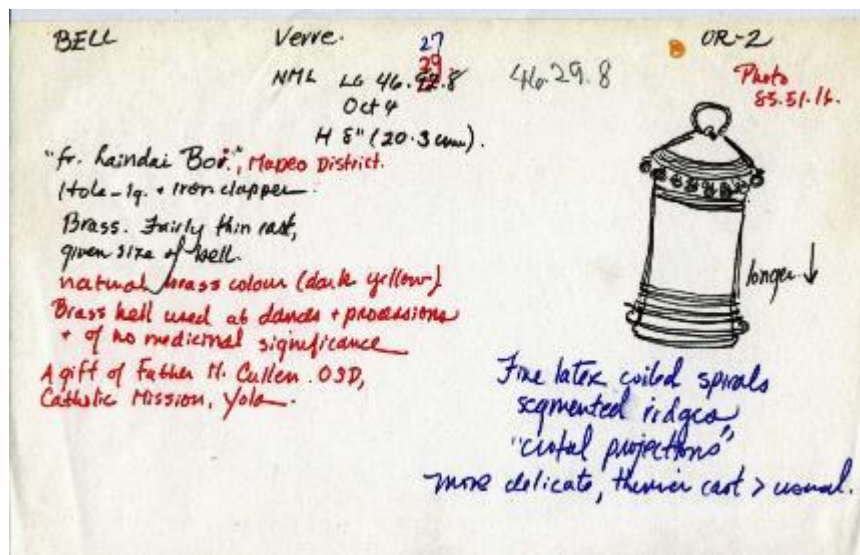 BELL
Verre.
27
29
OR-2
NML LG 46.92.8
46.29.8
Photo
83.51.16.
Oct 4
H 8" (20.3 cm).
"fr. Laindai Bor.", Mapeo District.
Hole - 1q. + iron clapper.
Brass. Fairly thin cast,
given size of bell.
natural brass colour (dark yellow)
Brass bell used at dances + processions
+ of no medicinal significance
A gift of Father M. Cullen. OSD,
Catholic Mission, Yola.
longer ↓
Fine latex coiled spirals
segmented ridges,
"crotal projections"
more delicate, thinner cast > usual.